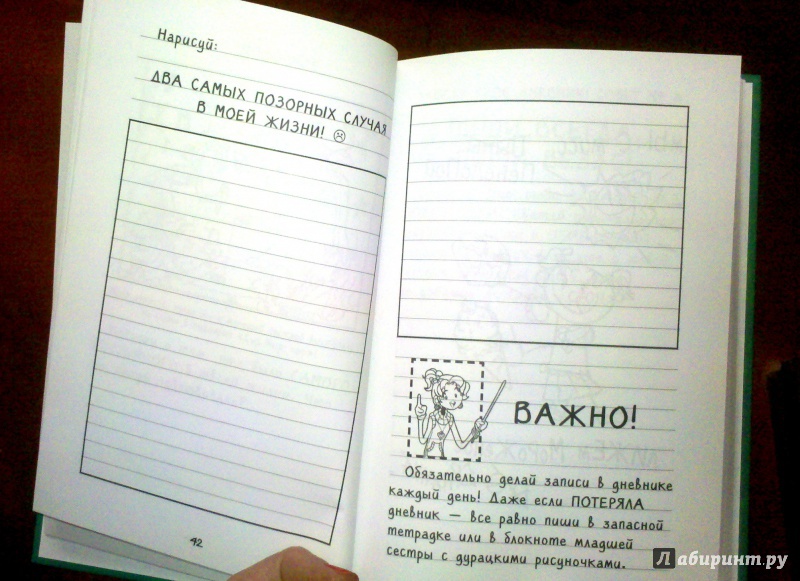 Нарисуй:
ДВА САМЫХ ПОЗОРНЫХ СЛУЧАЯ
В МОЕЙ ЖИЗНИ! ☹
42
ВАЖНО!
Обязательно делай записи в дневнике
каждый день! Даже если ПОТЕРЯЛА
дневник — все равно пиши в запасной
тетрадке или в блокноте младшей
сестры с дурацкими рисуночками.
Лабиринт.ру